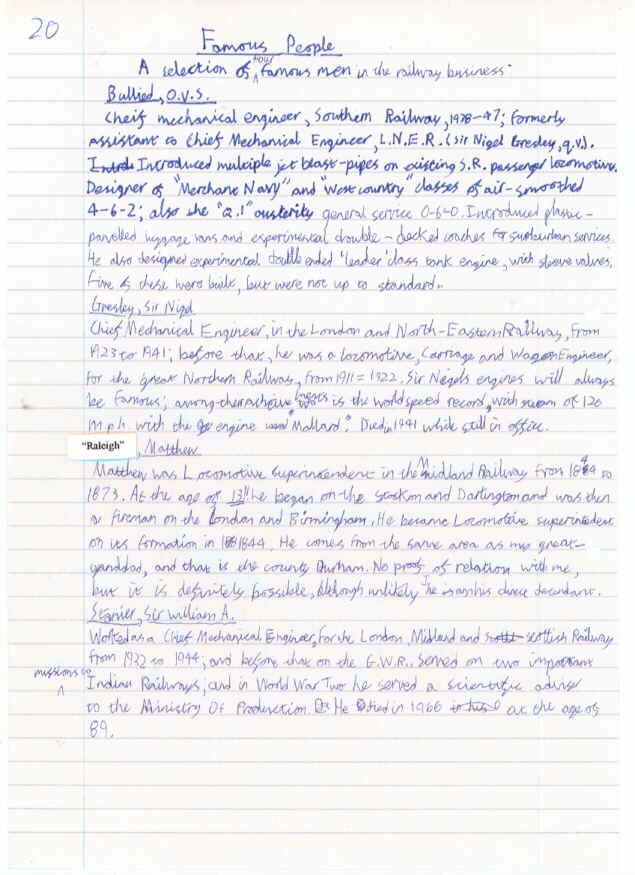 20
Famous People
A selection of four famous men in the railway business.
Bullied, O.V.S.
Cheif mechanical engineer, Southern Railway, 1938-47; formerly
assistant to Chief Mechanical Engineer, L.N.E.R. (Sir Nigel Gresley, q.v.).
Introd Introduced multiple jet blast-pipes on existing S.R. passenger locomotive.
Designer of "Merchant Navy" and "West country" classes of air-smoothed
4-6-2; also the "Q.1" austerity general service 0-6-0. Introduced plastic-
panelled luggage vans and experimental double-decked coaches for suburban services.
He also designed experimental double ended 'leader' class tank engine, with sleeve valves.
Five of these were built, but were not up to standard..
Gresley, Sir Nigel
Chief Mechanical Engineer, in the London and North-Eastern Railway, from
1923 to 1941; before that, he was a locomotive, Carriage and Wagon Engineer,
for the Great Northern Railway, from 1911 = 1922. Sir Nigels engines will always
be famous; among the is the world speed record, with steam of 126
m.p.h. with the engine Mallard. Died in 1941 while still in office.
"Raleigh", Matthew
Matthew was Locomotive Superintendent in the Midland Railway from 1844 to
1873. At the age of 13!! he began on the Stockton and Darlington and was then
a fireman on the London and Birmingham. He became Locomotive superintendent
on its formation in 1844. He comes from the same area as my great-
granddad, and that is the county Durham. No proof of relation with me,
but it is definitely possible, although unlikely he is his direct decendant.
Stanier, Sir William A.
Worked as a Chief Mechanical Engineer, for the London, Midland and scottish Railway
from 1932 to 1944; and before that on the G.W.R.. Served on two important
missions to Indian Railways; and in World War Two he served a scientific adviser
to the Ministry Of Production. He died in 1966 at the age of
89.